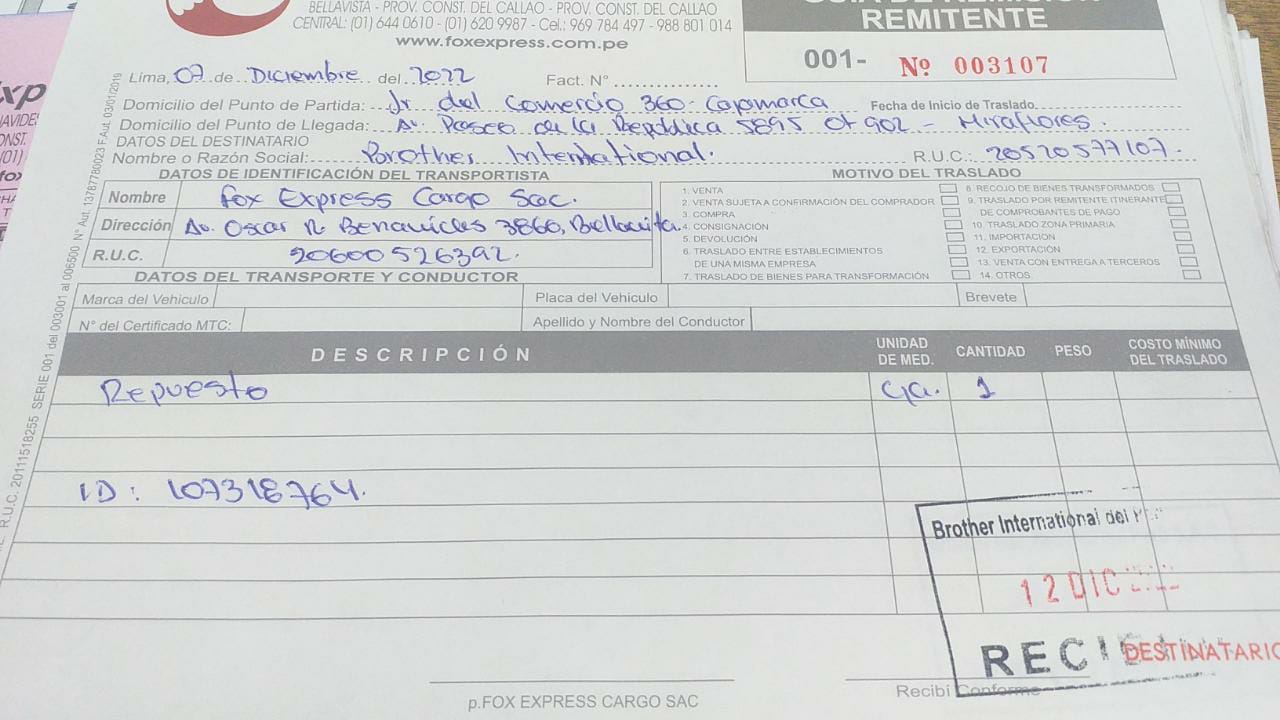 BELLAVISTA - PROV. CONST. DEL CALLAO - PROV. CONST. DEL CALLAO
CENTRAL: (01) 644 0610 - (01) 620 9987 - Cel.: 969 784 497 - 988 801 014
www.foxexpress.com.pe
REMITENTE
001- Nº 003107
Lima, 07 de Diciembre del 2022 Fact. N°
Domicilio del Punto de Partida: Jr del Comercio 360- Cajamarca Fecha de Inicio de Traslado
Domicilio del Punto de Llegada: Av. Paseo de la República 5895 Of 902 - Miraflores.
DATOS DEL DESTINATARIO
Nombre o Razón Social: Brother International. R.U.C.: 20520577107.
DATOS DE IDENTIFICACIÓN DEL TRANSPORTISTA
Nombre Fox Express Cargo Sac.
Dirección Av. Oscar R Benavides 3860, Bellavista.
R.U.C. 20600526392.
MOTIVO DEL TRASLADO
1. VENTA
2. VENTA SUJETA A CONFIRMACIÓN DEL COMPRADOR
3. COMPRA
4. CONSIGNACIÓN
5. DEVOLUCIÓN
6. TRASLADO ENTRE ESTABLECIMIENTOS
DE UNA MISMA EMPRESA
7. TRASLADO DE BIENES PARA TRANSFORMACIÓN
8. RECOJO DE BIENES TRANSFORMADOS
9. TRASLADO POR REMITENTE ITINERANTE
DE COMPROBANTES DE PAGO
10. TRASLADO ZONA PRIMARIA
11. IMPORTACIÓN
12. EXPORTACIÓN
13. VENTA CON ENTREGA A TERCEROS
14. OTROS
DATOS DEL TRANSPORTE Y CONDUCTOR
Marca del Vehiculo Placa del Vehiculo Brevete
N° del Certificado MTC: Apellido y Nombre del Conductor
DESCRIPCIÓN UNIDAD DE MED. CANTIDAD PESO COSTO MÍNIMO DEL TRASLADO
Repuesto Cja. 1
ID: 107318764.
Brother International del
12 DIC
RECI
DESTINATARIO
p.FOX EXPRESS CARGO SAC
Recibí Conforme
R.U.C. 20111518255 SERIE 001 del 003001 al 006500 N° Aut. 13787780023 F.Aut. 03/01/2019